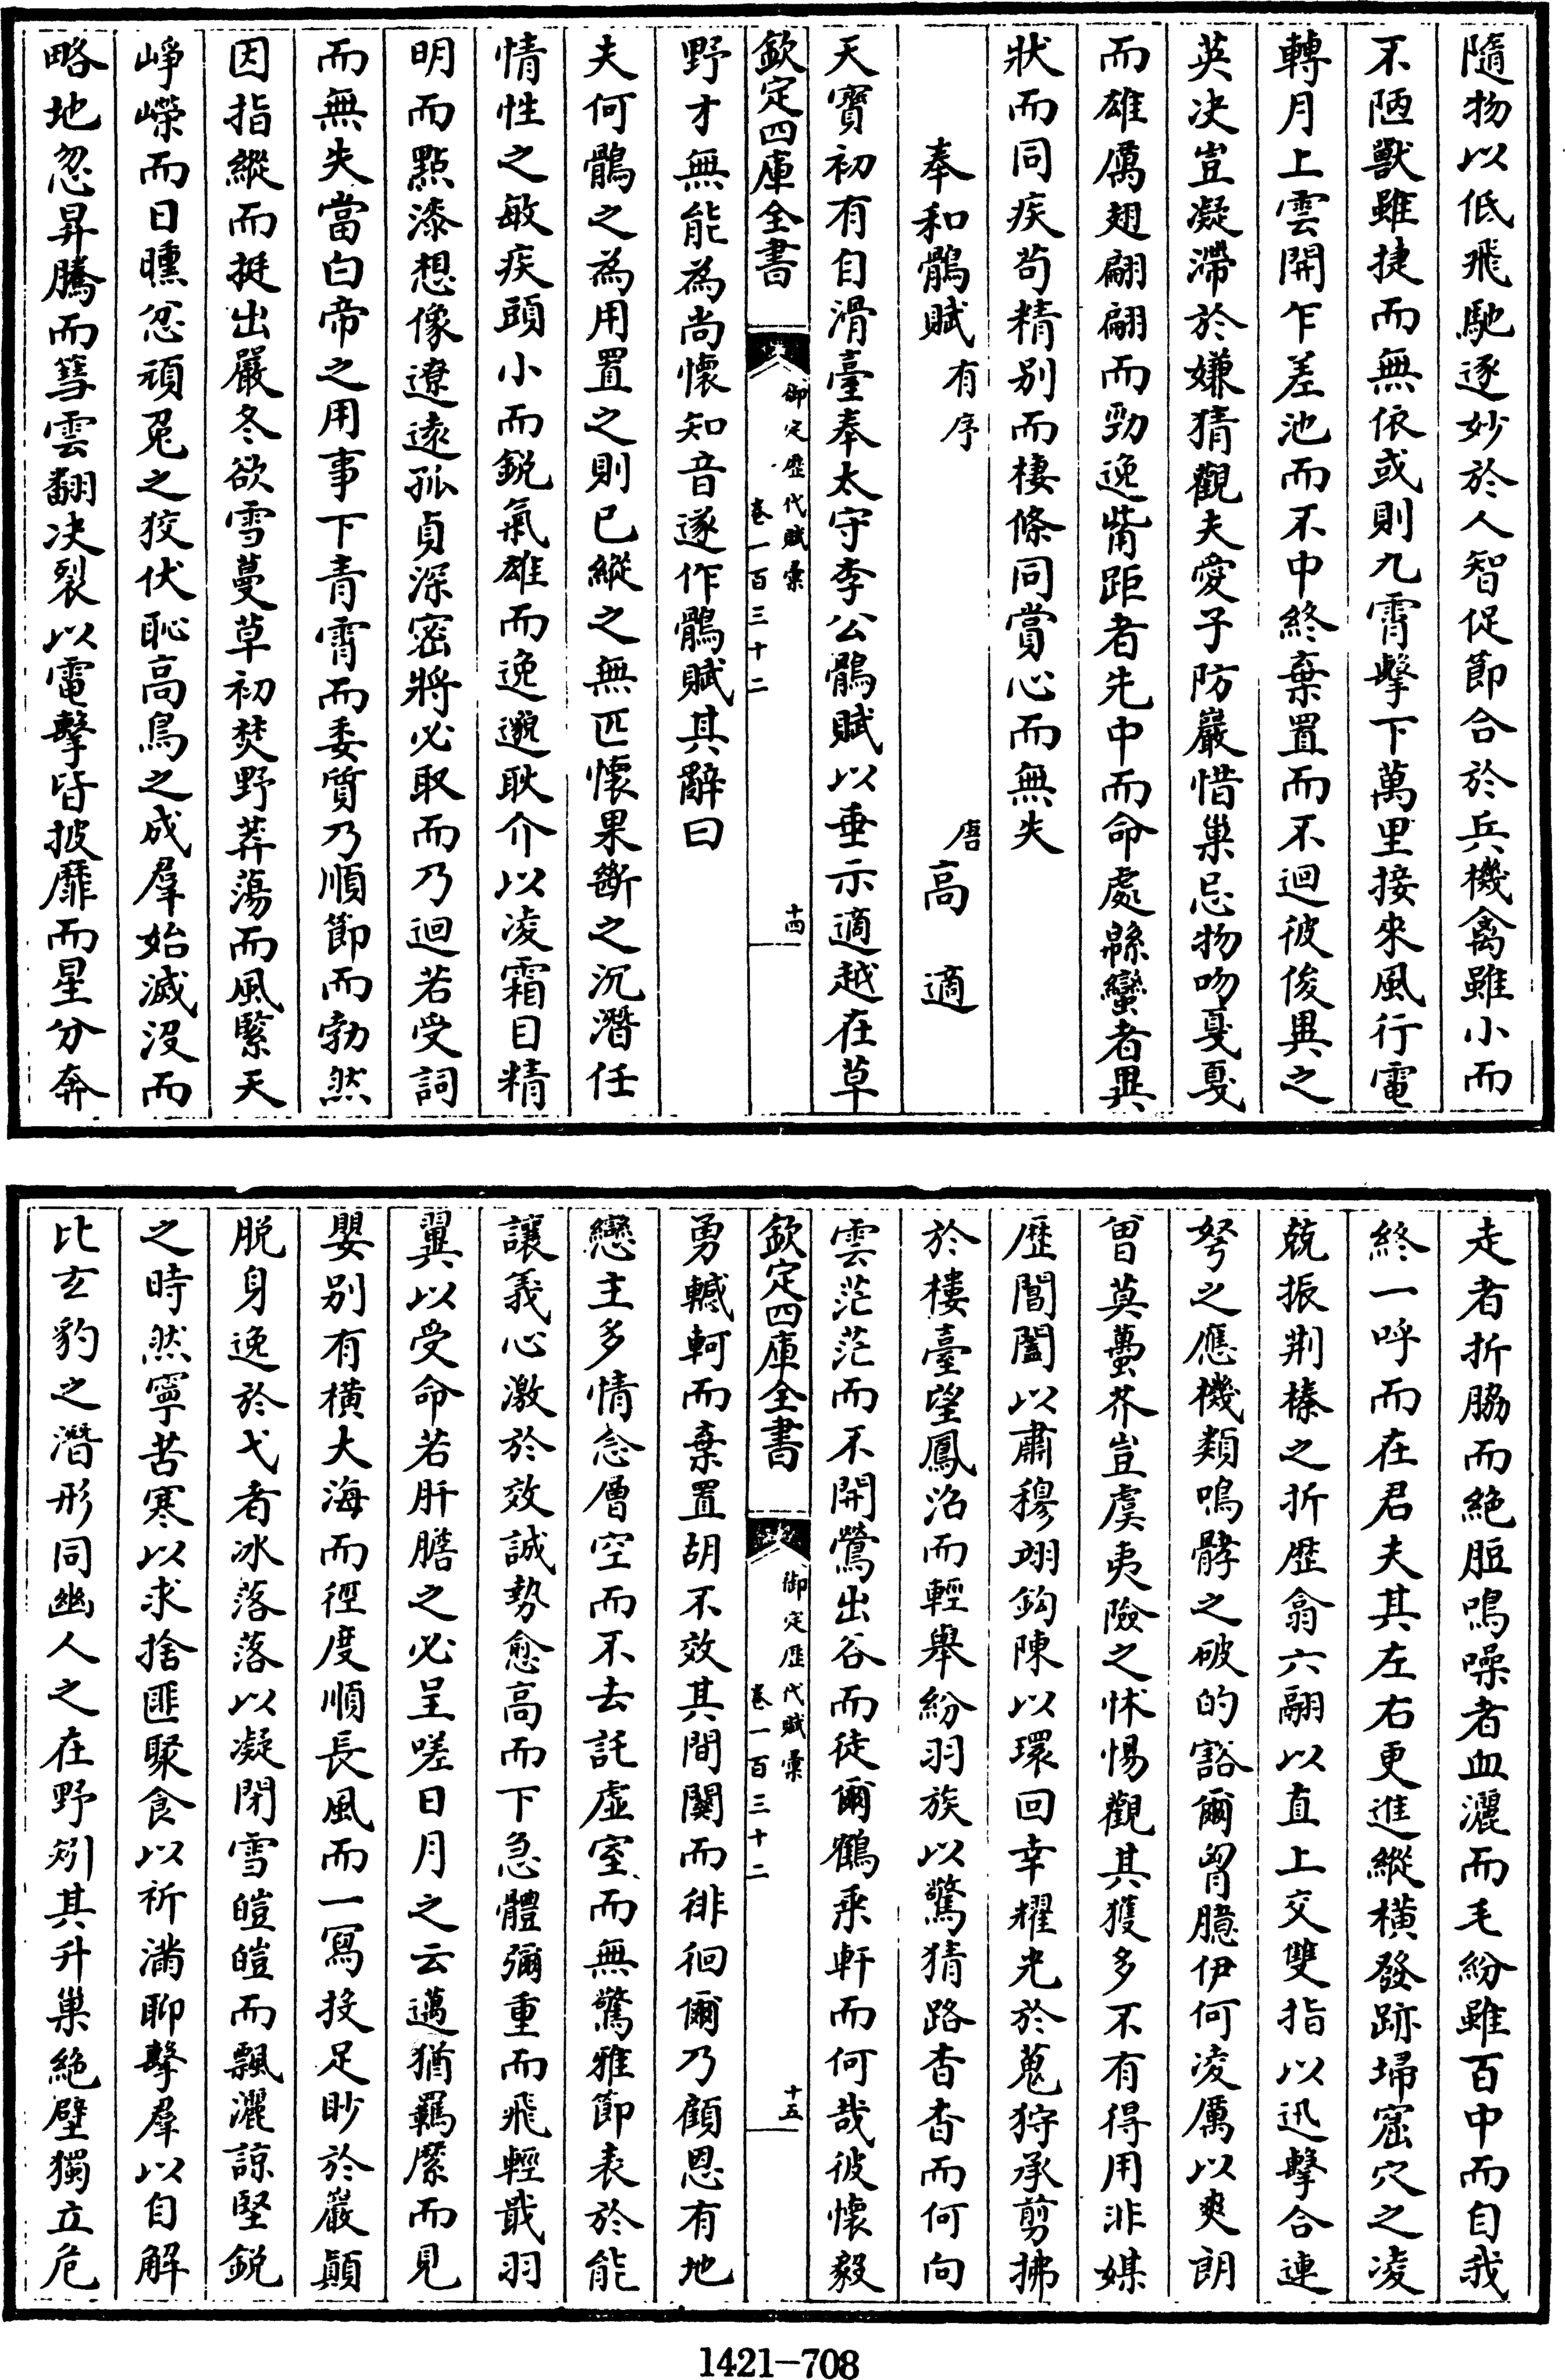 隨物以低飛馳逐妙於人智促節合於兵機禽雖小而
不陋獸雖捷而無依或則九霄擊下萬里接來風行電
轉月上雲開乍差池而不中終棄置而不迴彼俊異之
英决豈凝滯於嫌猜觀夫愛子防巖惜巢忌物吻戛戛
而雄厲翅翩翩而勁逸觜距者先中而命處緜蠻者異
狀而同疾茍精别而棲條同賞心而無失
奉和鶻賦有序　唐高適
天寶初有自滑臺奉太守李公鶻賦以垂示適越在草
欽定四庫全書　御定歴代賦彙　卷一百三十二　十四
野才無能為尚懷知音遂作鶻賦其辭曰
夫何鶻之為用置之則已縱之無匹懷果斷之沉潛任
情性之敏疾頭小而鋭氣雄而逸邈耿介以凌霜目精
明而點漆想像遼遠孤貞深密將必取而乃迴若受詞
而無失當白帝之用事下青霄而委質乃順節而勃然
因指縱而挺出嚴冬欲雪蔓草初焚野莽蕩而風緊天
崢嶸而日曛忽頑兔之狡伏恥高鳥之成羣始滅沒而
略地忽昇騰而篲雲翻决裂以電擊皆披靡而星分奔
走者折脇而絶脰鳴噪者血灑而毛紛雖百中而自我
終一呼而在君夫其左右更進縱横發跡埽窟穴之凌
兢振荆榛之折歴翕六翮以直上交雙指以迅擊合連
弩之應機類鳴髇之破的豁爾胷臆伊何凌厲以爽朗
曾莫蠆芥豈虞夷險之怵惕觀其獲多不有得用非媒
歴閶闔以肅穆翊鈎陳以環回幸耀光於蒐狩承剪拂
於樓臺望鳳沼而輕舉紛羽族以驚猜路杳杳而何向
雲茫茫而不開鶯出谷而徒爾鶴乘軒而何哉彼懷毅
欽定四庫全書　御定歴代賦彙　卷一百三十二　十五
勇轗軻而棄置胡不效其間關而徘徊爾乃顧恩有地
戀主多情念層空而不去託虛室而無驚雅節表於能
讓義心激於效誠勢愈高而下急體彌重而飛輕戢羽
翼以受命若肝膽之必呈嗟日月之云邁猶羈縻而見
嬰别有横大海而徑度順長風而一寫投足眇於巖巔
脱身逸於弋者冰落落以凝閉雪皚皚而飄灑諒堅鋭
之時然寧苦寒以求捨匪聚食以祈滿聊擊羣以自解
比玄豹之潛形同幽人之在野矧其升巢絶壁獨立危
1421-708